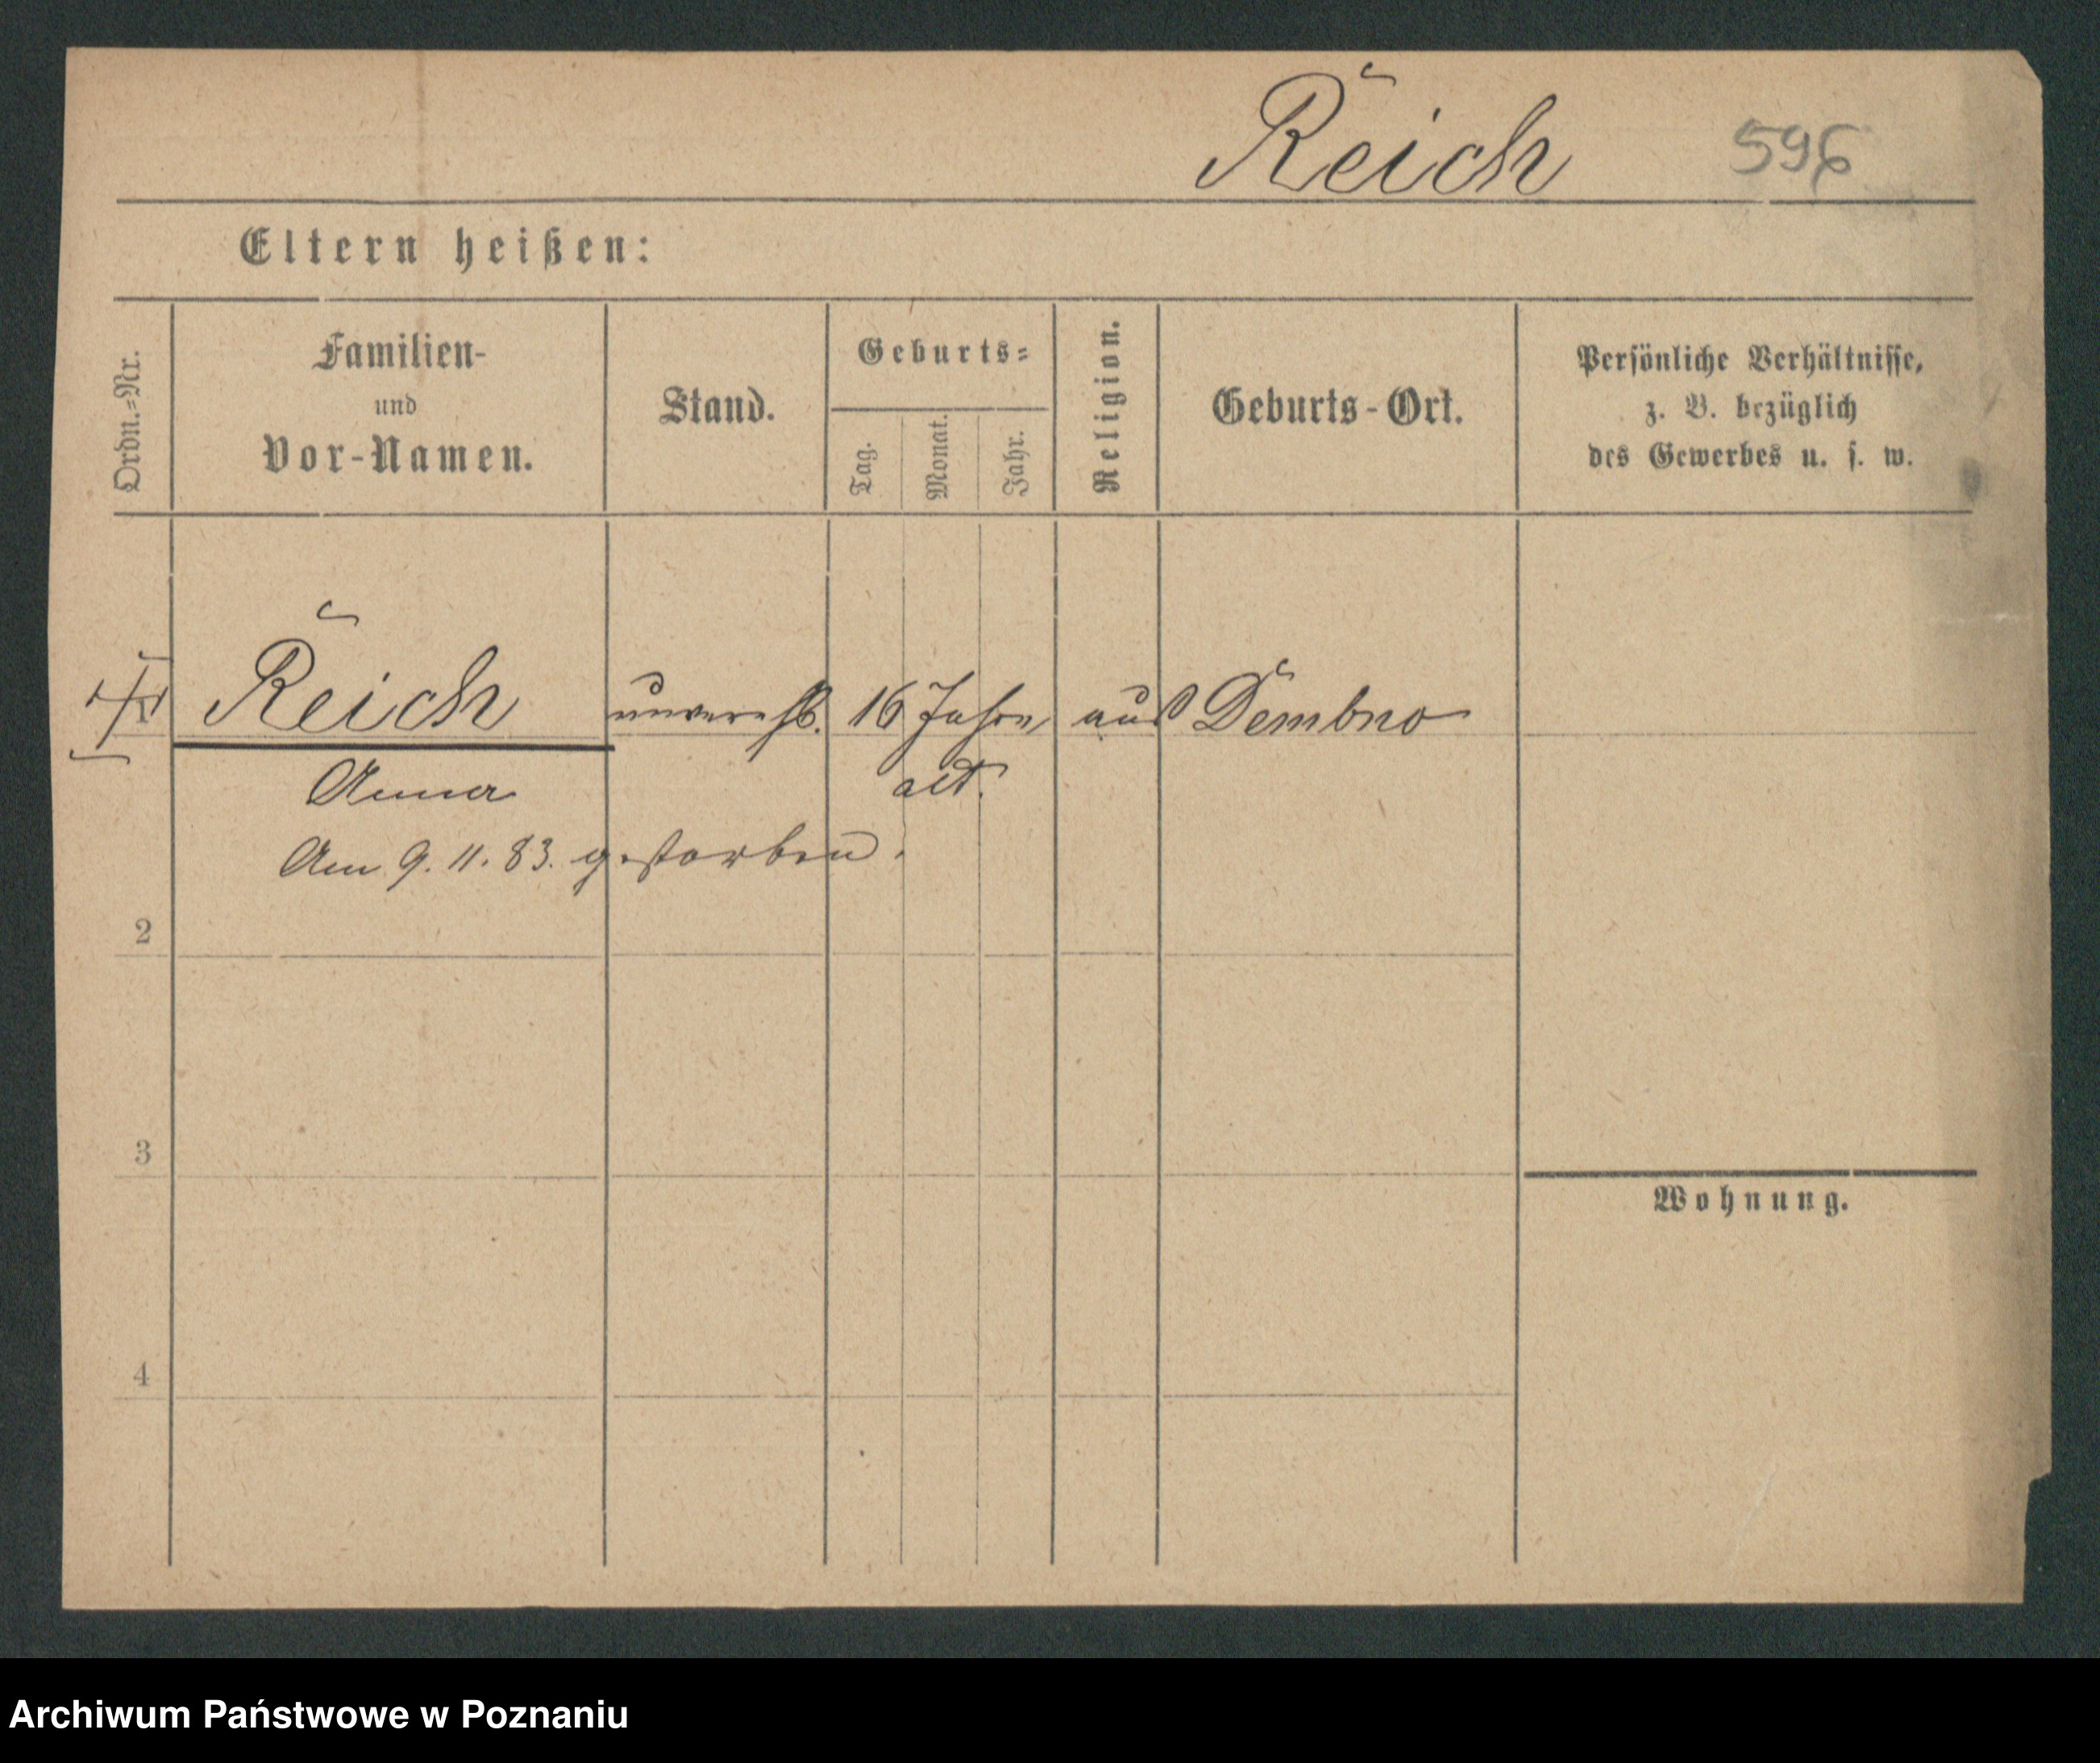 Reich 596
Eltern heißen:
Ordn.-Nr.
Familien-
und
Vor-Namen.
Stand.
Geburts-
Tag.
Monat.
Jahr.
Religion.
Geburts-Ort.
Persönliche Verhältnisse,
z. B. bezüglich
des Gewerbes u. s. w.
1 Reich unverehl. 16 Jahre aus Dembno
Anna alt.
Am 9. 11. 83. gestorben.
2
3
Wohnung.
4
Archiwum Państwowe w Poznaniu